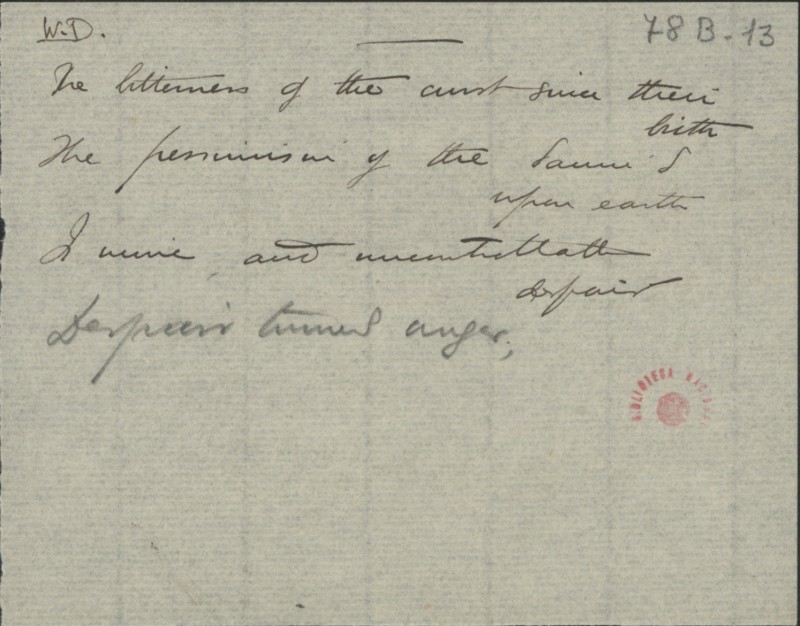 W.D.
78 B - 13
The bitterness of the curst since their
birth
The pessimism of the damn'd
upon earth
Is mine, and uncontrollable
despair
Despair turned anger,
BIBLIOTECA NACIONAL